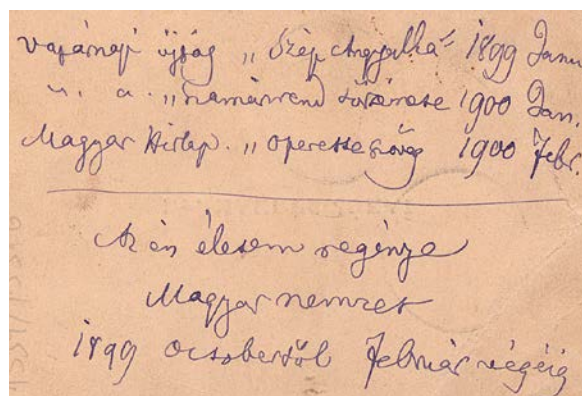 vasárnapi újság „Szép Angyalka" 1899 Janu
u. a. „Szamárrend története 1900 Jan.
Magyar Hirlap. „Operette szöveg 1900 Febr.
Az én életem regénye
Magyar nemzet
1899 Octobertől Február végéig